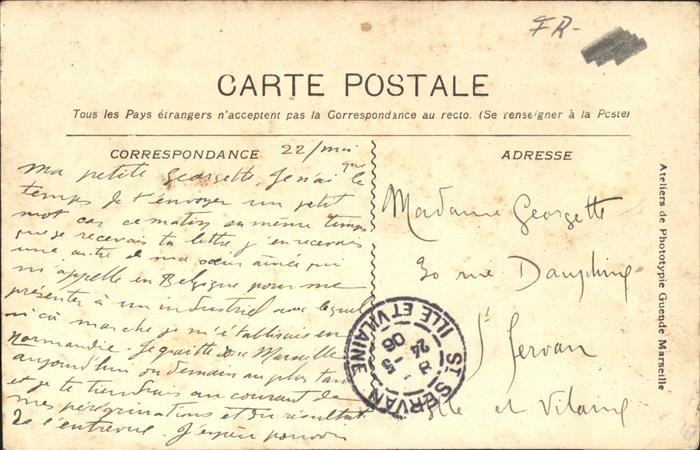 FR-
CARTE POSTALE
Tous les Pays étrangers n'acceptent pas la Correspondance au recto. (Se renseigner à la Poste)
CORRESPONDANCE
22/mai
ma petite Georgette, je n'ai que le
temps de t'envoyer un petit
mot car ce matin en même temps
que je recevais ta lettre j'en recevais
une autre de ma sœur aînée qui
m'appelle en Belgique pour me
présenter à un industriel avec lequel
si ça marche je m'établirais en
Normandie. Je quitte donc Marseille
aujourd'hui ou demain au plus tard
et je te tiendrai au courant de
mes pérégrinations et du résultat
de l'entrevue. J'espère pouvoir
ADRESSE
Madame Georgette
30 rue Dauphine
St Servan
Ille et Vilaine
ST SERVAN
ILLE ET VILAINE
24 -5
06
Ateliers de Phototypie Guende Marseille